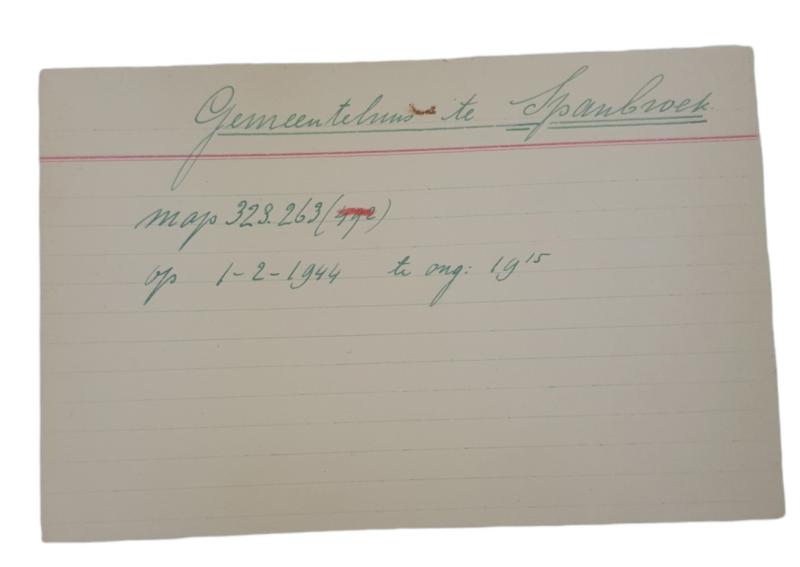 Gemeentehuis te Spanbroek.
map 323.263 ( )
op 1-2-1944 te ong: 19¹⁵